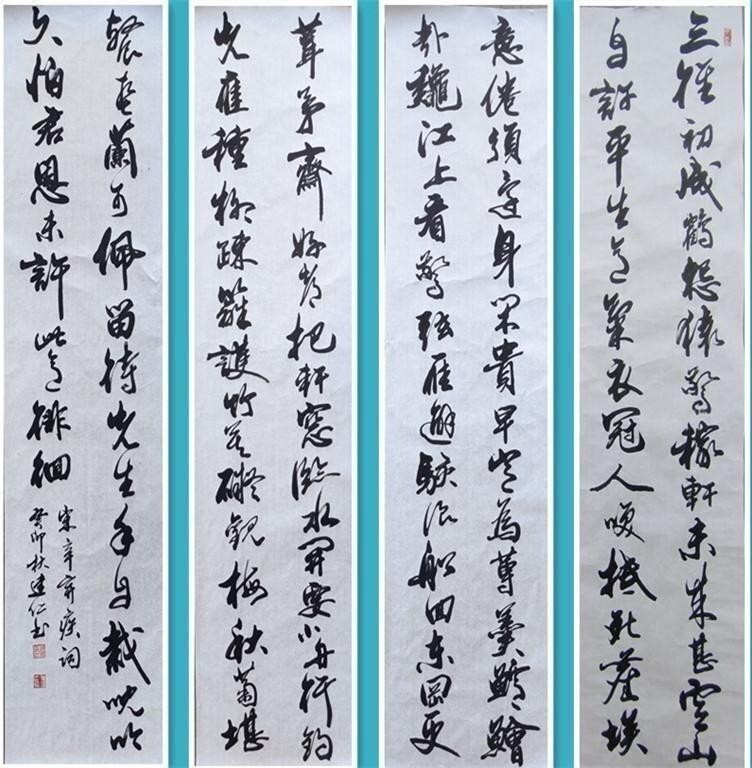 三徑初成鶴怨猿驚稼軒未來甚雲山
自許平生意氣衣冠人咲抵死塵埃
意倦須還身閑貴早豈為蓴羹鱸鱠
哉龝江上看驚弦雁避駭浪船回東岡更
葺茅齋好都把軒窓臨水開要小舟行釣
先應種柳疎籬護竹莫礙觀梅秋菊堪
餐春蘭可佩留待先生手自栽沉吟
久怕君恩未許此意徘徊
宋辛弃疾詞
癸卯秋建仁书